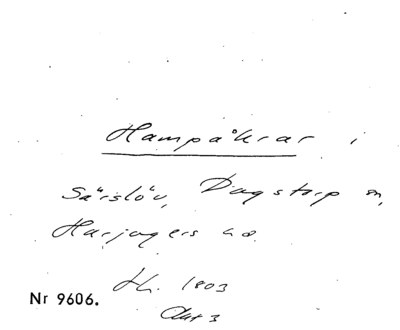 Hampåkrar i
Särslöv, Dagstorp sn,
Harjagers hd.
Nr 9606.
1803
Akt 3